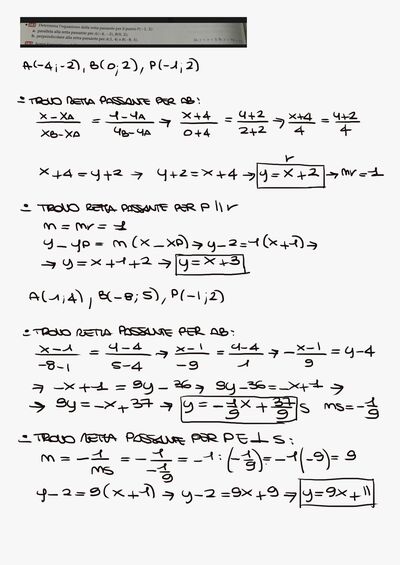 Determina l'equazione della retta passante per il punto P(-1; 2):
a. parallela alla retta passante per A(-4; -2), B(0; 2);
b. perpendicolare alla retta passante per A(1; 4) e B(-8; 5).
A(-4;-2), B(0;2), P(-1;2)
÷ TROVO RETTA PASSANTE PER AB:
x-xA/xB-xA = y-yA/yB-yA → x+4/0+4 = y+2/2+2 → x+4/4 = y+2/4
x+4 = y+2 → y+2 = x+4 → y = x+2 r → mr = 1
÷ TROVO RETTA PASSANTE PER P // r
m = mr = 1
y-yP = m(x-xP) → y-2 = 1(x+1) →
→ y = x+1+2 → y = x+3
A(1;4), B(-8;5), P(-1;2)
÷ TROVO RETTA PASSANTE PER AB:
x-1/-8-1 = y-4/5-4 → x-1/-9 = y-4/1 → -x-1/9 = y-4
→ -x+1 = 9y-36 → 9y-36 = -x+1 →
→ 9y = -x+37 → y = -1/9 x + 37/9 s ms = -1/9
÷ TROVO RETTA PASSANTE PER P E ⊥ s:
m = -1/ms = -1/-1/9 = -1:(-1/9) = -1(-9) = 9
y-2 = 9(x+1) → y-2 = 9x+9 → y = 9x+11